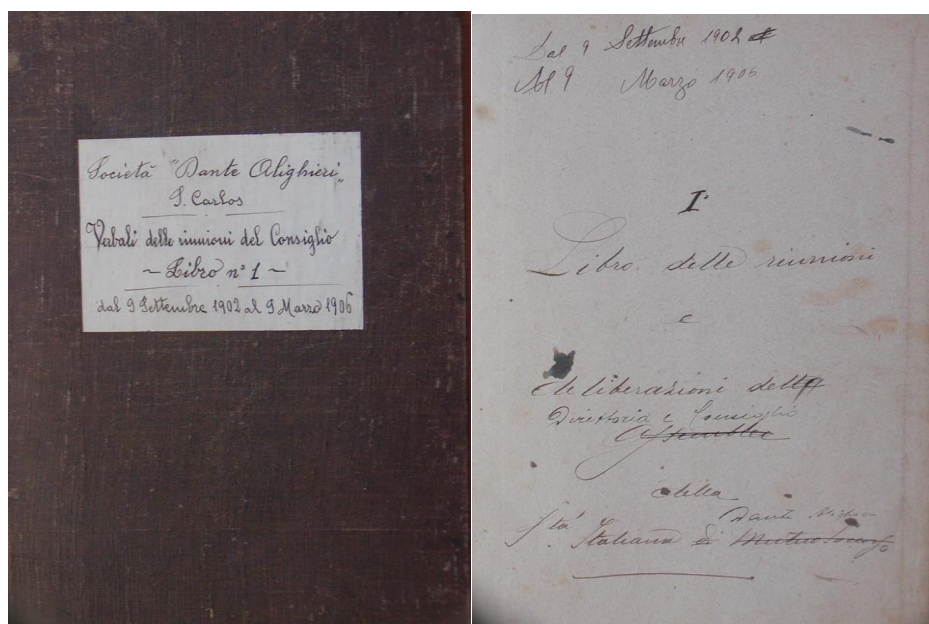 Società "Dante Alighieri„
S. Carlos
Verbali delle riunioni del Consiglio
~ Libro n° 1 ~
dal 9 Settembre 1902 al 9 Marzo 1906
Dal 9 Settembre 1902
Al 9 Marzo 1906
I°
Libro delle riunioni
e
deliberazioni della
Direttoria e Consiglio
Assemblee
della
Dante
S.tà Italiana di Mutuo Soccorso